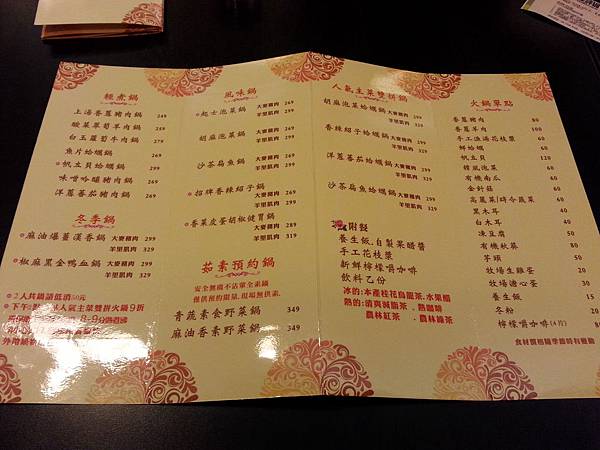 輕煮鍋
上海香蔥豬肉鍋 249
酸菜翠萄羊肉鍋 269
白玉蘿蔔牛肉鍋 279
魚片蛤蠣鍋 269
帆立貝蛤蠣鍋 269
味噌嗆雞豬肉鍋 269
洋蔥蕃茄豬肉鍋 269
冬季鍋
麻油爆薑漢香鍋 大麥豬肉 299
羊里肌肉 329
椒麻黑金鴨血鍋 大麥豬肉 299
羊里肌肉 329
2人共鍋請低消50元
風味鍋
起士泡菜鍋 大麥豬肉 269
羊里肌肉 299
胡麻泡菜鍋 大麥豬肉 269
羊里肌肉 299
沙茶扁魚鍋 大麥豬肉 269
羊里肌肉 299
招牌香辣紹子鍋 大麥豬肉 269
羊里肌肉 299
香菜皮蛋胡椒健胃鍋 大麥豬肉 289
羊里肌肉 319
茹素預約鍋
安全無機不沾葷全素鍋
僅供預約限量,現場無供素.
青蔬素食野菜鍋 349
麻油香素野菜鍋 349
人氣主菜雙拼鍋
胡麻泡菜蛤蠣鍋 大麥豬肉 299
羊里肌肉 329
香辣紹子蛤蠣鍋 大麥豬肉 299
羊里肌肉 329
洋蔥蕃茄蛤蠣鍋 大麥豬肉 299
羊里肌肉 329
沙茶扁魚蛤蠣鍋 大麥豬肉 299
羊里肌肉 329
附餐
養生飯.自製果醋醬
手工花枝漿
新鮮檸檬嚼咖啡
飲料乙份
冰的:本產桂花烏龍茶.水果醋
熱的:清爽黃脂茶 .熱咖啡
農林紅茶 .農林綠茶
火鍋單點
香蔥豬肉 80
香蔥羊肉 100
手工血滴花枝漿 60
鮮蛤蠣 60
帆立貝 60
韓風泡菜 50
有機南瓜 50
金針菇 50
高麗菜/時令蔬菜 50
黑木耳 40
白木耳 40
凍豆腐 50
有機秋葵 50
芋頭 50
牧場生雞蛋 20
牧場溏心蛋 30
養生飯 15
冬粉 20
檸檬嚼咖啡(4片) 80
食材價格隨季節時有變動